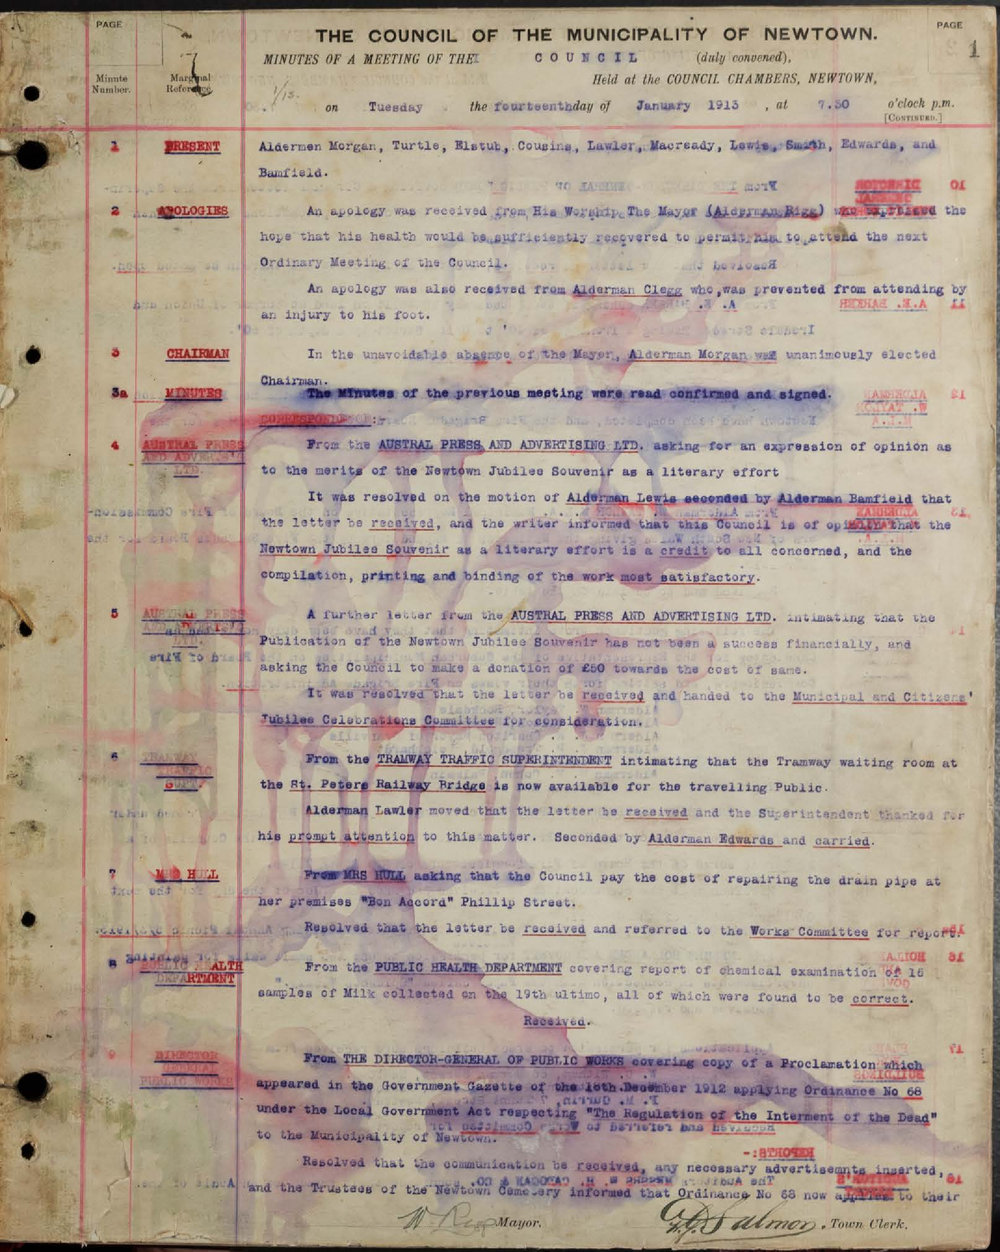 PAGE
PAGE
THE COUNCIL OF THE MUNICIPALITY OF NEWTOWN.
1
MINUTES OF A MEETING OF THE COUNCIL (duly convened),
Minute Number.
Marginal Reference.
Held at the COUNCIL CHAMBERS, NEWTOWN,
1/13.
on Tuesday the fourteenth day of January 1913, at 7.30 o'clock p.m.
[CONTINUED.]
1 PRESENT Aldermen Morgan, Turtle, Elstub, Cousins, Lawler, Macready, Lewis, Smith, Edwards, and
Bamfield.
2 APOLOGIES An apology was received from His Worship The Mayor (Alderman Rigg) who expressed the
hope that his health would be sufficiently recovered to permit him to attend the next
Ordinary Meeting of the Council.
An apology was also received from Alderman Clegg who was prevented from attending by
an injury to his foot.
3 CHAIRMAN In the unavoidable absence of the Mayor, Alderman Morgan was unanimously elected
Chairman.
3a MINUTES The Minutes of the previous meeting were read confirmed and signed.
CORRESPONDENCE:
4 AUSTRAL PRESS From the AUSTRAL PRESS AND ADVERTISING LTD. asking for an expression of opinion as
AND ADVERTS'G
LTD. to the merits of the Newtown Jubilee Souvenir as a literary effort
It was resolved on the motion of Alderman Lewis seconded by Alderman Bamfield that
the letter be received, and the writer informed that this Council is of opinion that the
Newtown Jubilee Souvenir as a literary effort is a credit to all concerned, and the
compilation, printing and binding of the work most satisfactory.
5 AUSTRAL PRESS A further letter from the AUSTRAL PRESS AND ADVERTISING LTD. intimating that the
LTD. Publication of the Newtown Jubilee Souvenir has not been a success financially, and
asking the Council to make a donation of £50 towards the cost of same.
It was resolved that the letter be received and handed to the Municipal and Citizens'
Jubilee Celebrations Committee for consideration.
6 TRAMWAY From the TRAMWAY TRAFFIC SUPERINTENDENT intimating that the Tramway waiting room at
TRAFFIC
SUPT. the St. Peters Railway Bridge is now available for the travelling Public.
Alderman Lawler moved that the letter be received and the Superintendent thanked for
his prompt attention to this matter. Seconded by Alderman Edwards and carried.
7 MRS HULL From MRS HULL asking that the Council pay the cost of repairing the drain pipe at
her premises "Bon Accord" Phillip Street.
Resolved that the letter be received and referred to the Works Committee for report.
8 PUBLIC HEALTH From the PUBLIC HEALTH DEPARTMENT covering report of chemical examination of 16
DEPARTMENT
samples of Milk collected on the 19th ultimo, all of which were found to be correct.
Received.
9 DIRECTOR From THE DIRECTOR-GENERAL OF PUBLIC WORKS covering copy of a Proclamation which
GENERAL
PUBLIC WORKS appeared in the Government Gazette of the 18th December 1912 applying Ordinance No 68
under the Local Government Act respecting "The Regulation of the Interment of the Dead"
to the Municipality of Newtown.
Resolved that the communication be received, any necessary advertisemnts inserted,
and the Trustees of the Newtown Cemetery informed that Ordinance No 68 now applies to their
W Rigg Mayor. Salmon. Town Clerk.